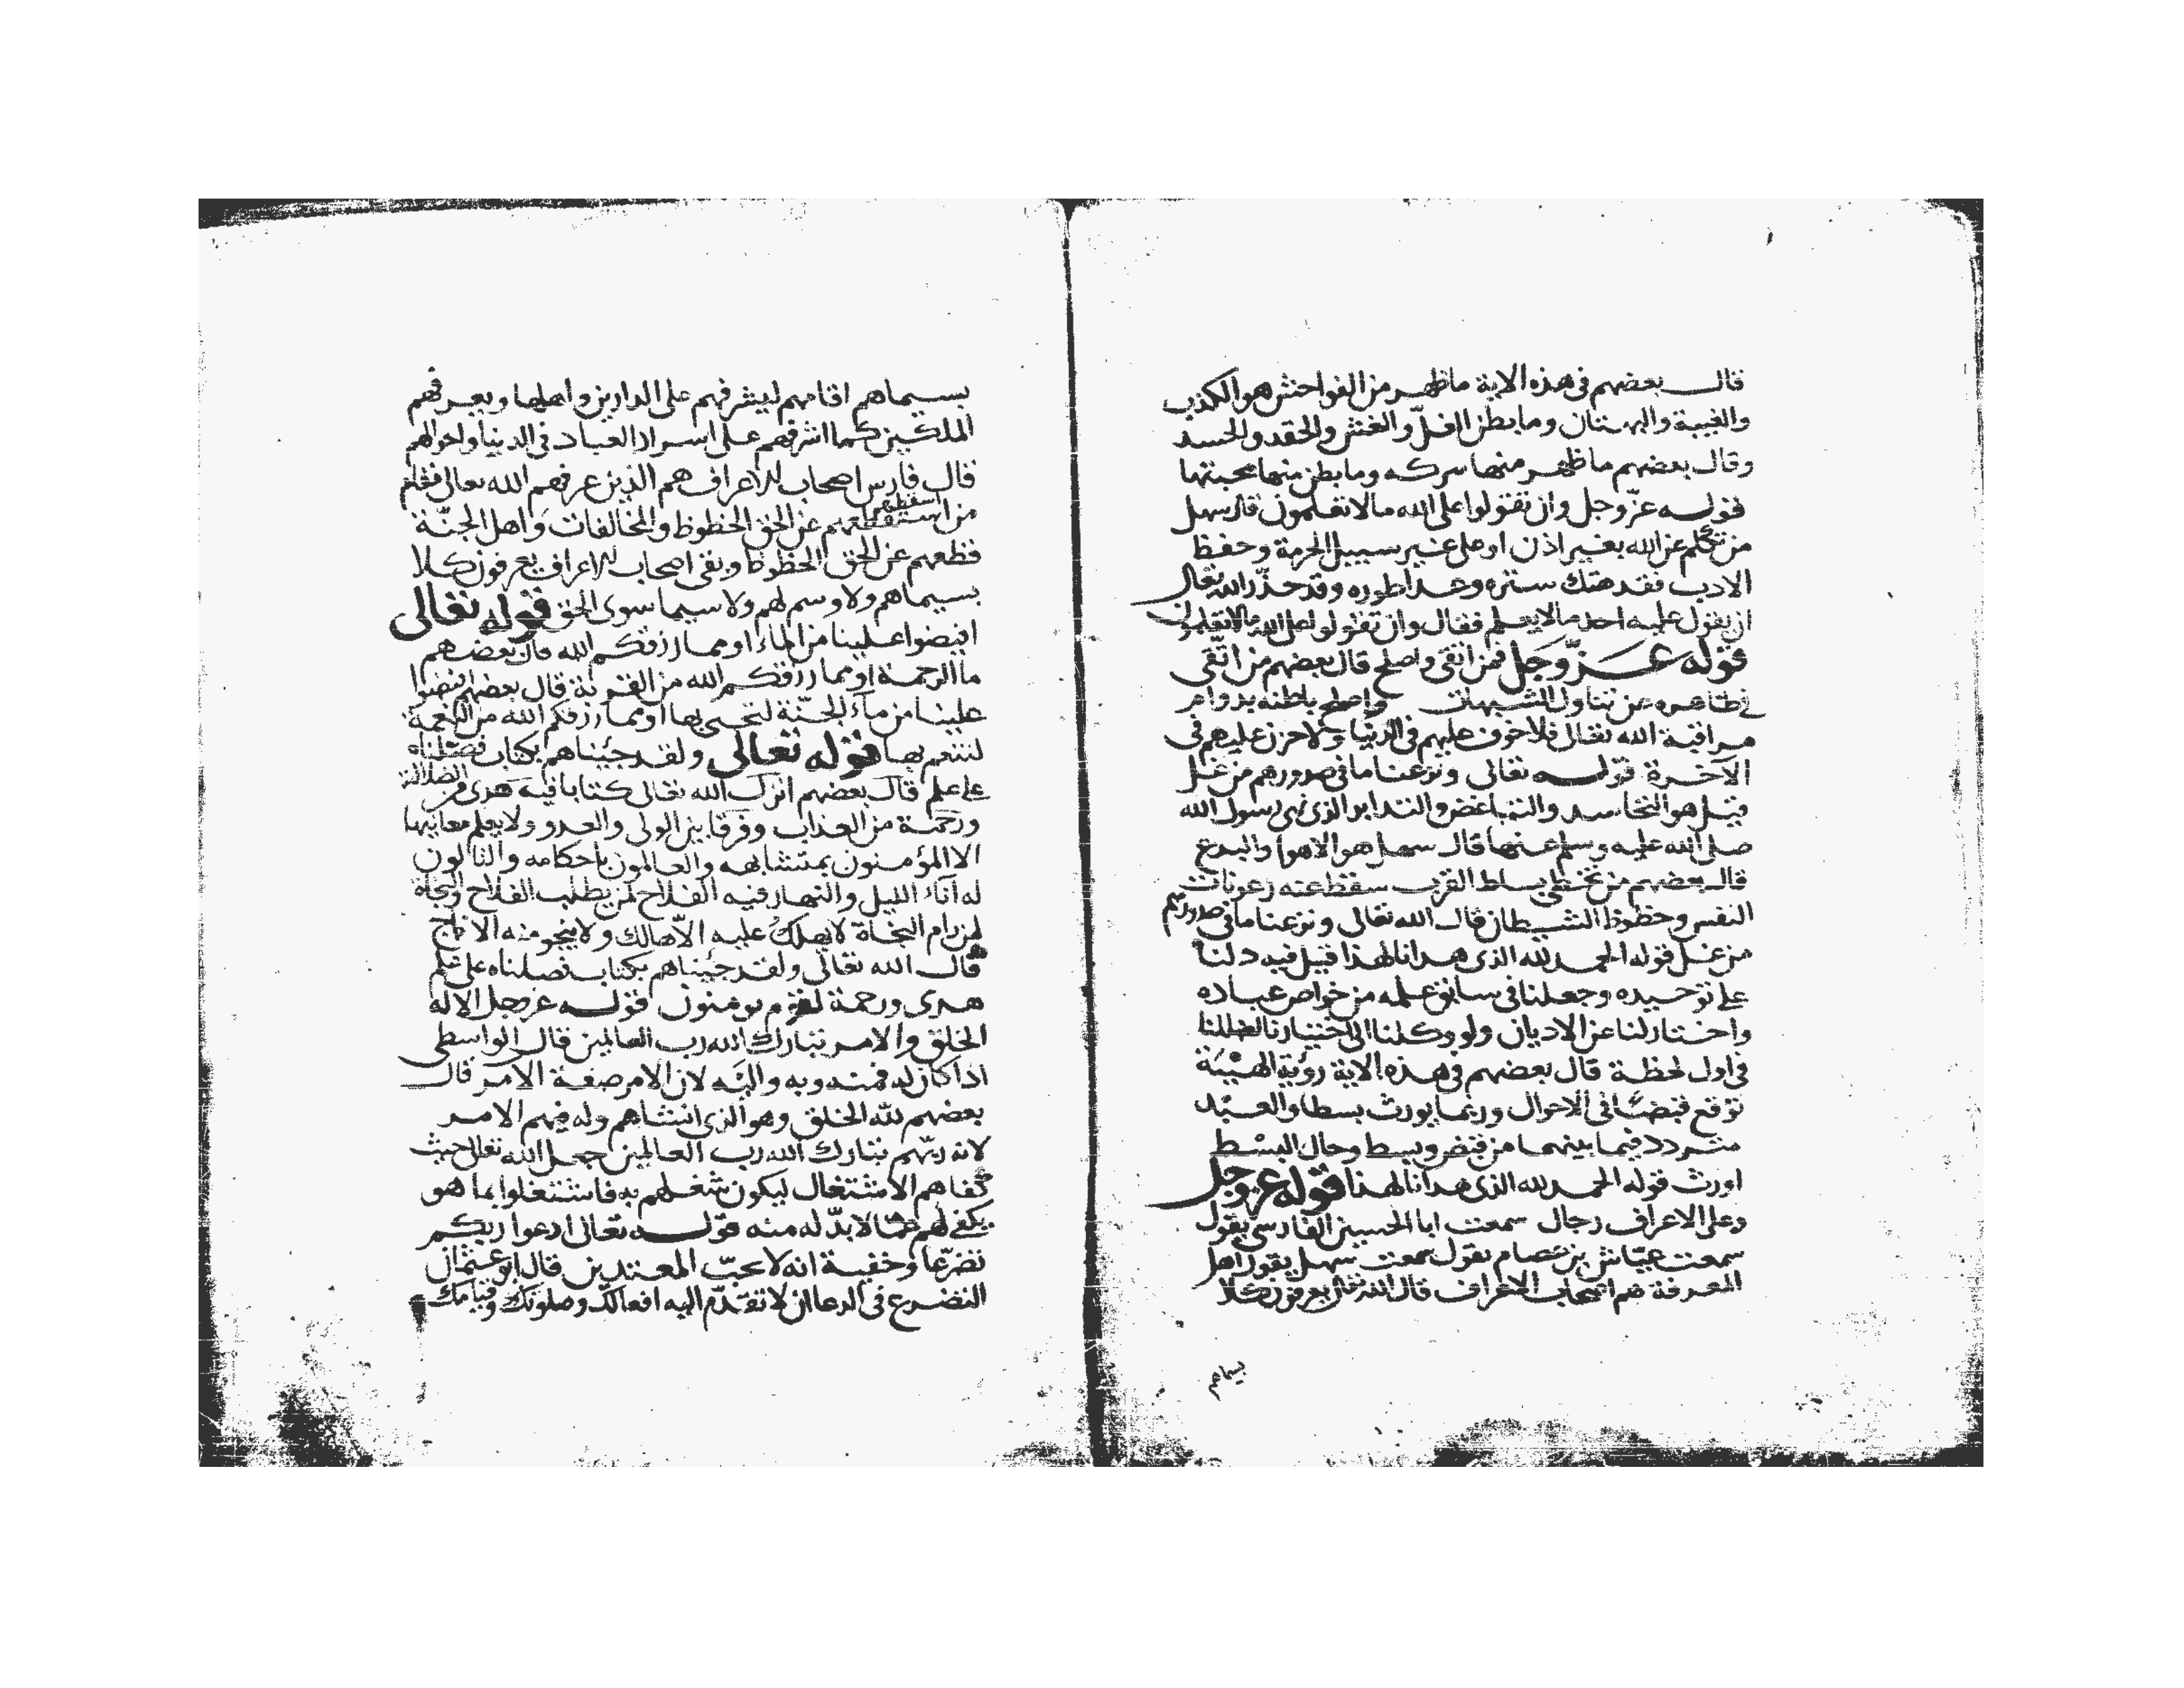 قال بعضهم في هذه الاية ما ظهر من الفواحش هو الكذب
والغيبة والبهتان وما بطن الغلّ والغش والحقد والحسد
وقال بعضهم ما ظهر منها سركه وما بطن منها محبتها
قوله عزّ وجل وان تقولوا على الله مالا تعلمون قال سهل
من تكلم عن الله بغير اذن او على غير سبيل الحرمة وحفظ
الادب فقد هتك ستره وعدا طوره وقد حذّر الله تعالى
ان يقول عليه احد مالا يعلم فقال وان تقولوا على الله مالا تعلمون
قوله عزّ وجل فمن اتقى واصلح قال بعضهم من اتّقى
في ظاهره عن تناول الشبهات واصلح باطنه بدوام
مراقبة الله تعالى فلا خوف عليهم في الدنيا ولا حزن عليهم في
الآخرة قوله تعالى ونزعنا ما في صدورهم من غل
قيل هو التحاسد والتباغض والتدابر الذي نهى رسول الله
صلى الله عليه وسلم عنها قال سهل هو الاهوا والبدع
قال بعضهم من تخطى بساط القرب سقط عنه رعونات
النفس وحظوظ الشيطان قال الله تعالى ونزعنا ما في صدورهم
من غل قوله الحمد لله الذي هدانا لهذا قيل فيه دلنا
على توحيده وجعلنا في سابق علمه من خواص عباده
واختار لنا عن الاديان ولو وكلنا الى اختيارنا لضللنا
في اول لحظة قال بعضهم في هذه الاية رؤية الهيبة
توقع قبضا في الاحوال وربما يورث بسطا والعبد
متردد فيما بينهما من قبض وبسط وحال البسط
اورث قوله الحمد لله الذي هدانا لهذا قوله عز وجل
وعلى الاعراف رجال سمعت ابا الحسين الفارسي يقول
سمعت عيّاش بن عصام يقول سمعت سهل يقول اهل
المعرفة هم اصحاب الاعراف قال الله تعالى يعرفون كلا
بسيماهم
بسيماهم اقامهم ليشرفهم على الدارين واهلها ويعرفهم
الملكين كما اشرفهم على اسرار العباد في الدنيا واحوالهم
قال فارس اصحاب الاعراف هم الذين عرفهم الله تعالى
من استقطعهم عن الحق الحظوظ والمخالفات واهل الجنّة
قطعهم عن الحق الحظوظ وبقى اصحاب الاعراف يعرفون كلا
بسيماهم ولا وسم لهم ولا سيما سوى الحق قوله تعالى
افيضوا علينا من الماء او مما رزقكم الله قال بعضهم
ما الرحمة او مما رزقكم الله من القربة قال بعضهم افيضوا
علينا من ماء الجنّة لنحيى بها او مما رزقكم الله من النعمة
لنتنعم بها قوله تعالى ولقد جئناهم بكتاب فصّلناه
على علم قال بعضهم انزل الله تعالى كتابا فيه هدى من الضلالة
ورحمة من العذاب وفرقا بين الولي والعدو ولا يعلم معانيها
الا المؤمنون بمتشابهه والعالمون باحكامه والتالون
له آناء الليل والنهار فيه الفلاح لمن يطلب الفلاح والنجاة
لمن رام النجاة لا يهلك عليه الّا هالك ولا ينجو منه الا ناج
قال الله تعالى ولقد جئناهم بكتاب فصلناه على علم
هدى ورحمة لقوم يومنون قوله عز وجل الا له
الخلق والامر تبارك الله رب العالمين قال الواسطي
اذا كان له فمنه وبه واليه لان الامر صفة الامر قال
بعضهم لله الخلق وهو الذي انشاهم وله فيهم الامر
لانه ربّهم تبارك الله رب العالمين جعل الله تعالى حيث
كفاهم الاشتغال ليكون شغلهم به فاشتغلوا بما هو
يكفي لهم عما لا بدّ له منه قوله تعالى ادعوا ربكم
تضرّعا وخفية انه لا يحبّ المعتدين قال ابو عثمان
التضرع في الدعا ان لا تقدّم اليه افعالك وصلوتك وقيامك